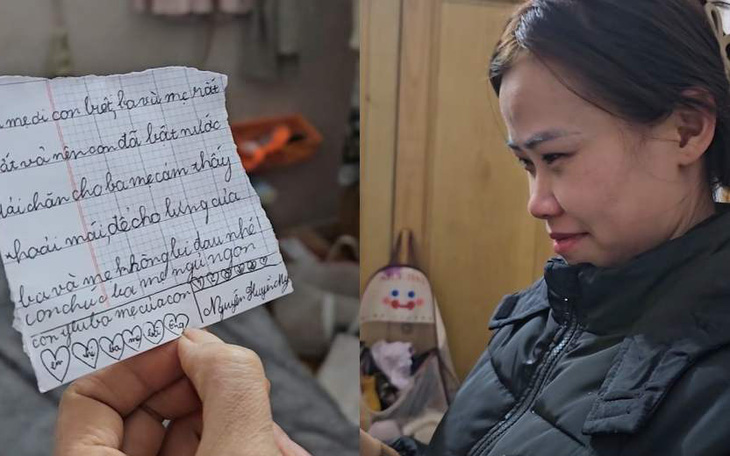 mẹ ơi con biết, ba và mẹ rất
vất vả nên con đã bật nước
dải chăn cho ba mẹ cảm thấy
thoải mái, để cho lưng của
ba và mẹ không bị đau nhé!
con chúc ba mẹ ngủ ngon
con yêu ba mẹ của con
Nguyễn Huyền My
em ba mẹ